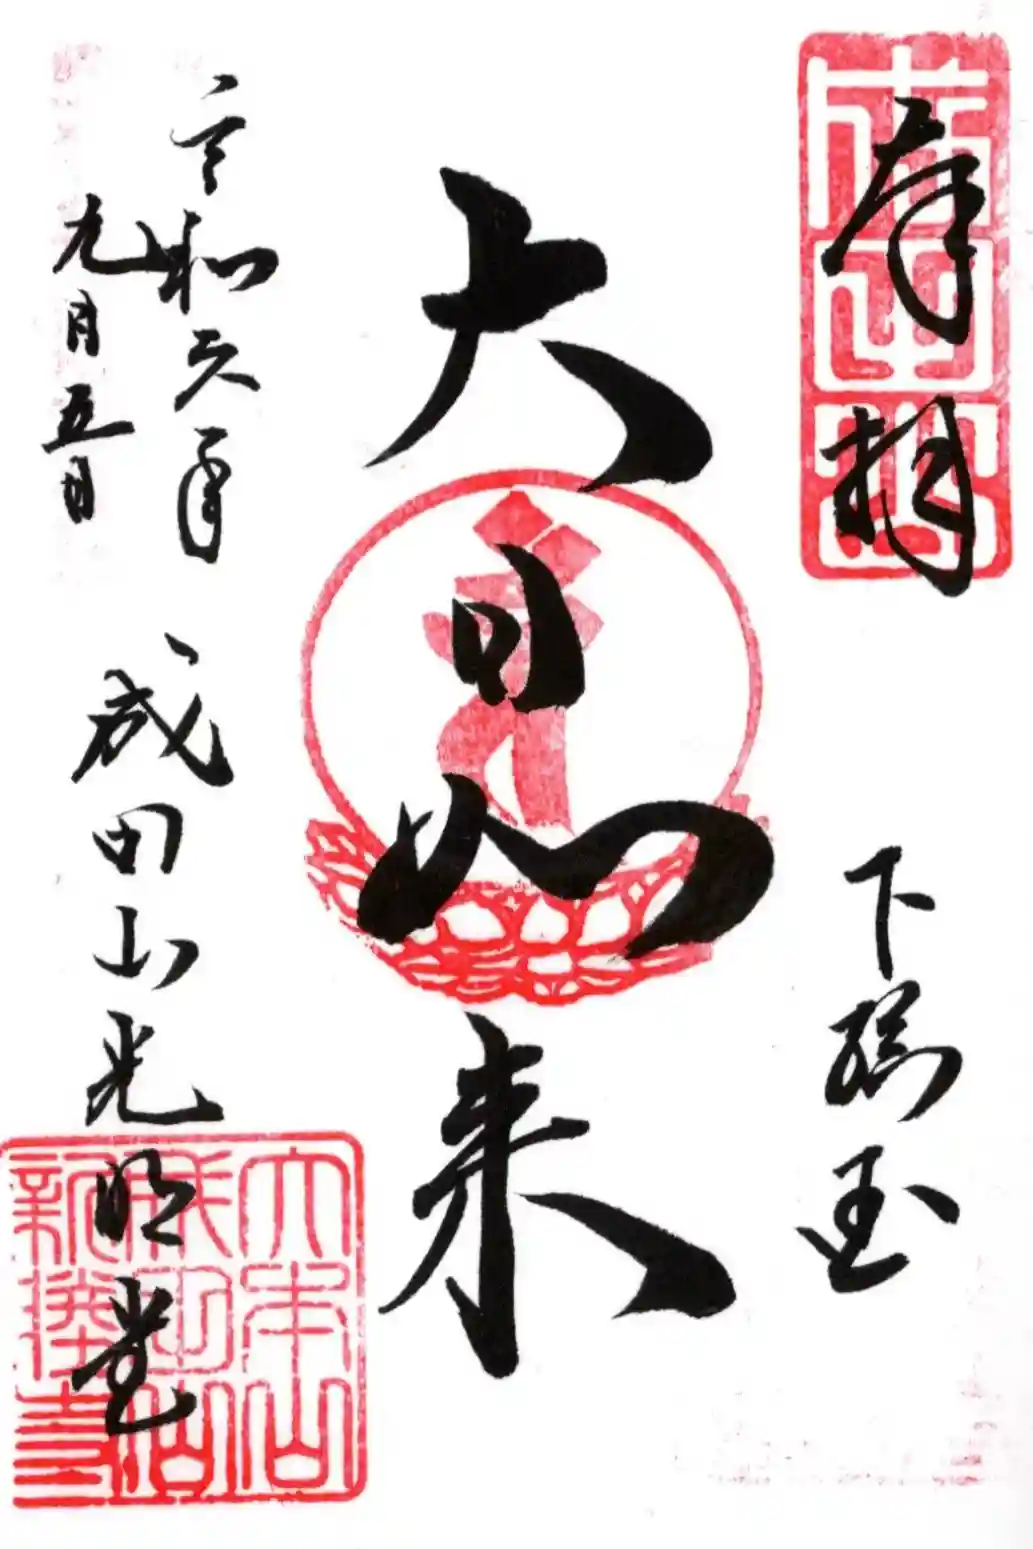 奉拝
成田山
下総国
大日如来
令和六年
九月五日
成田山光明堂
大本山
成田山
新勝寺